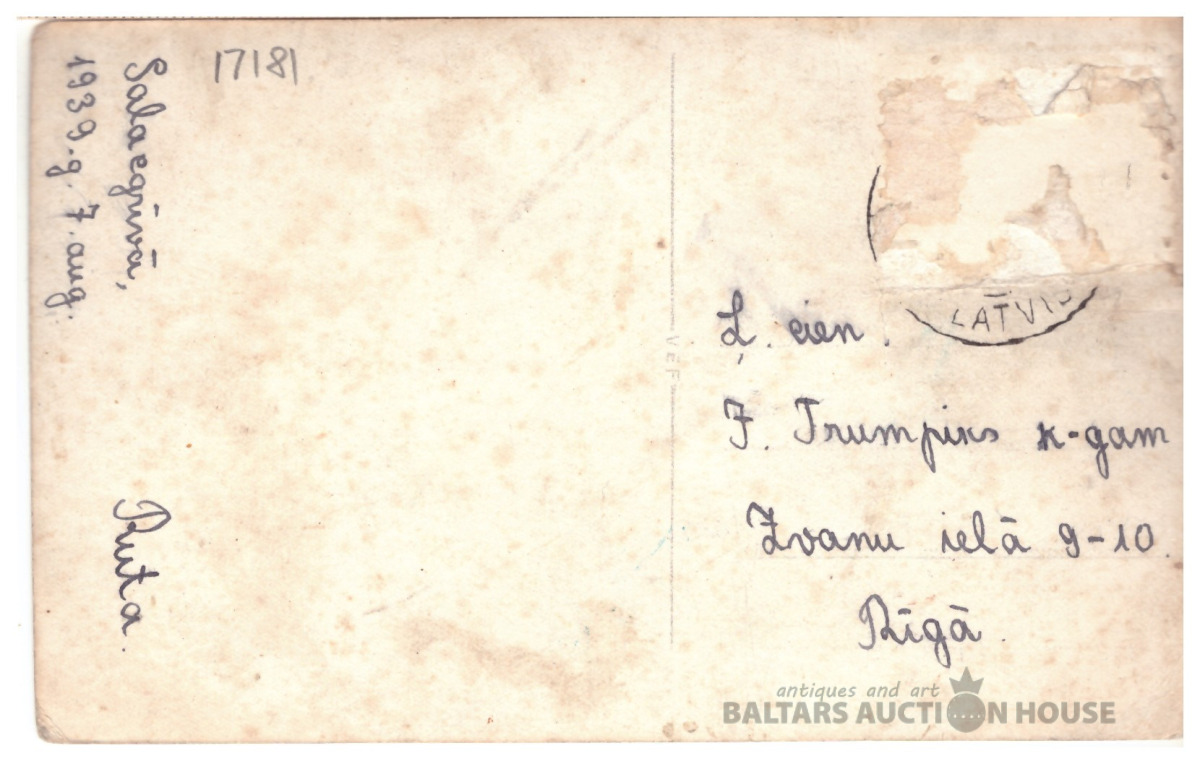 17181
Salacgrīvā,
1939.g. 7. aug.
Ruta.
VEF
LATVI
Ļ. cien.
J. Trumpiņs k-gam
Zvanu ielā 9-10.
Rīgā.
antiques and art
BALTARS AUCTION HOUSE